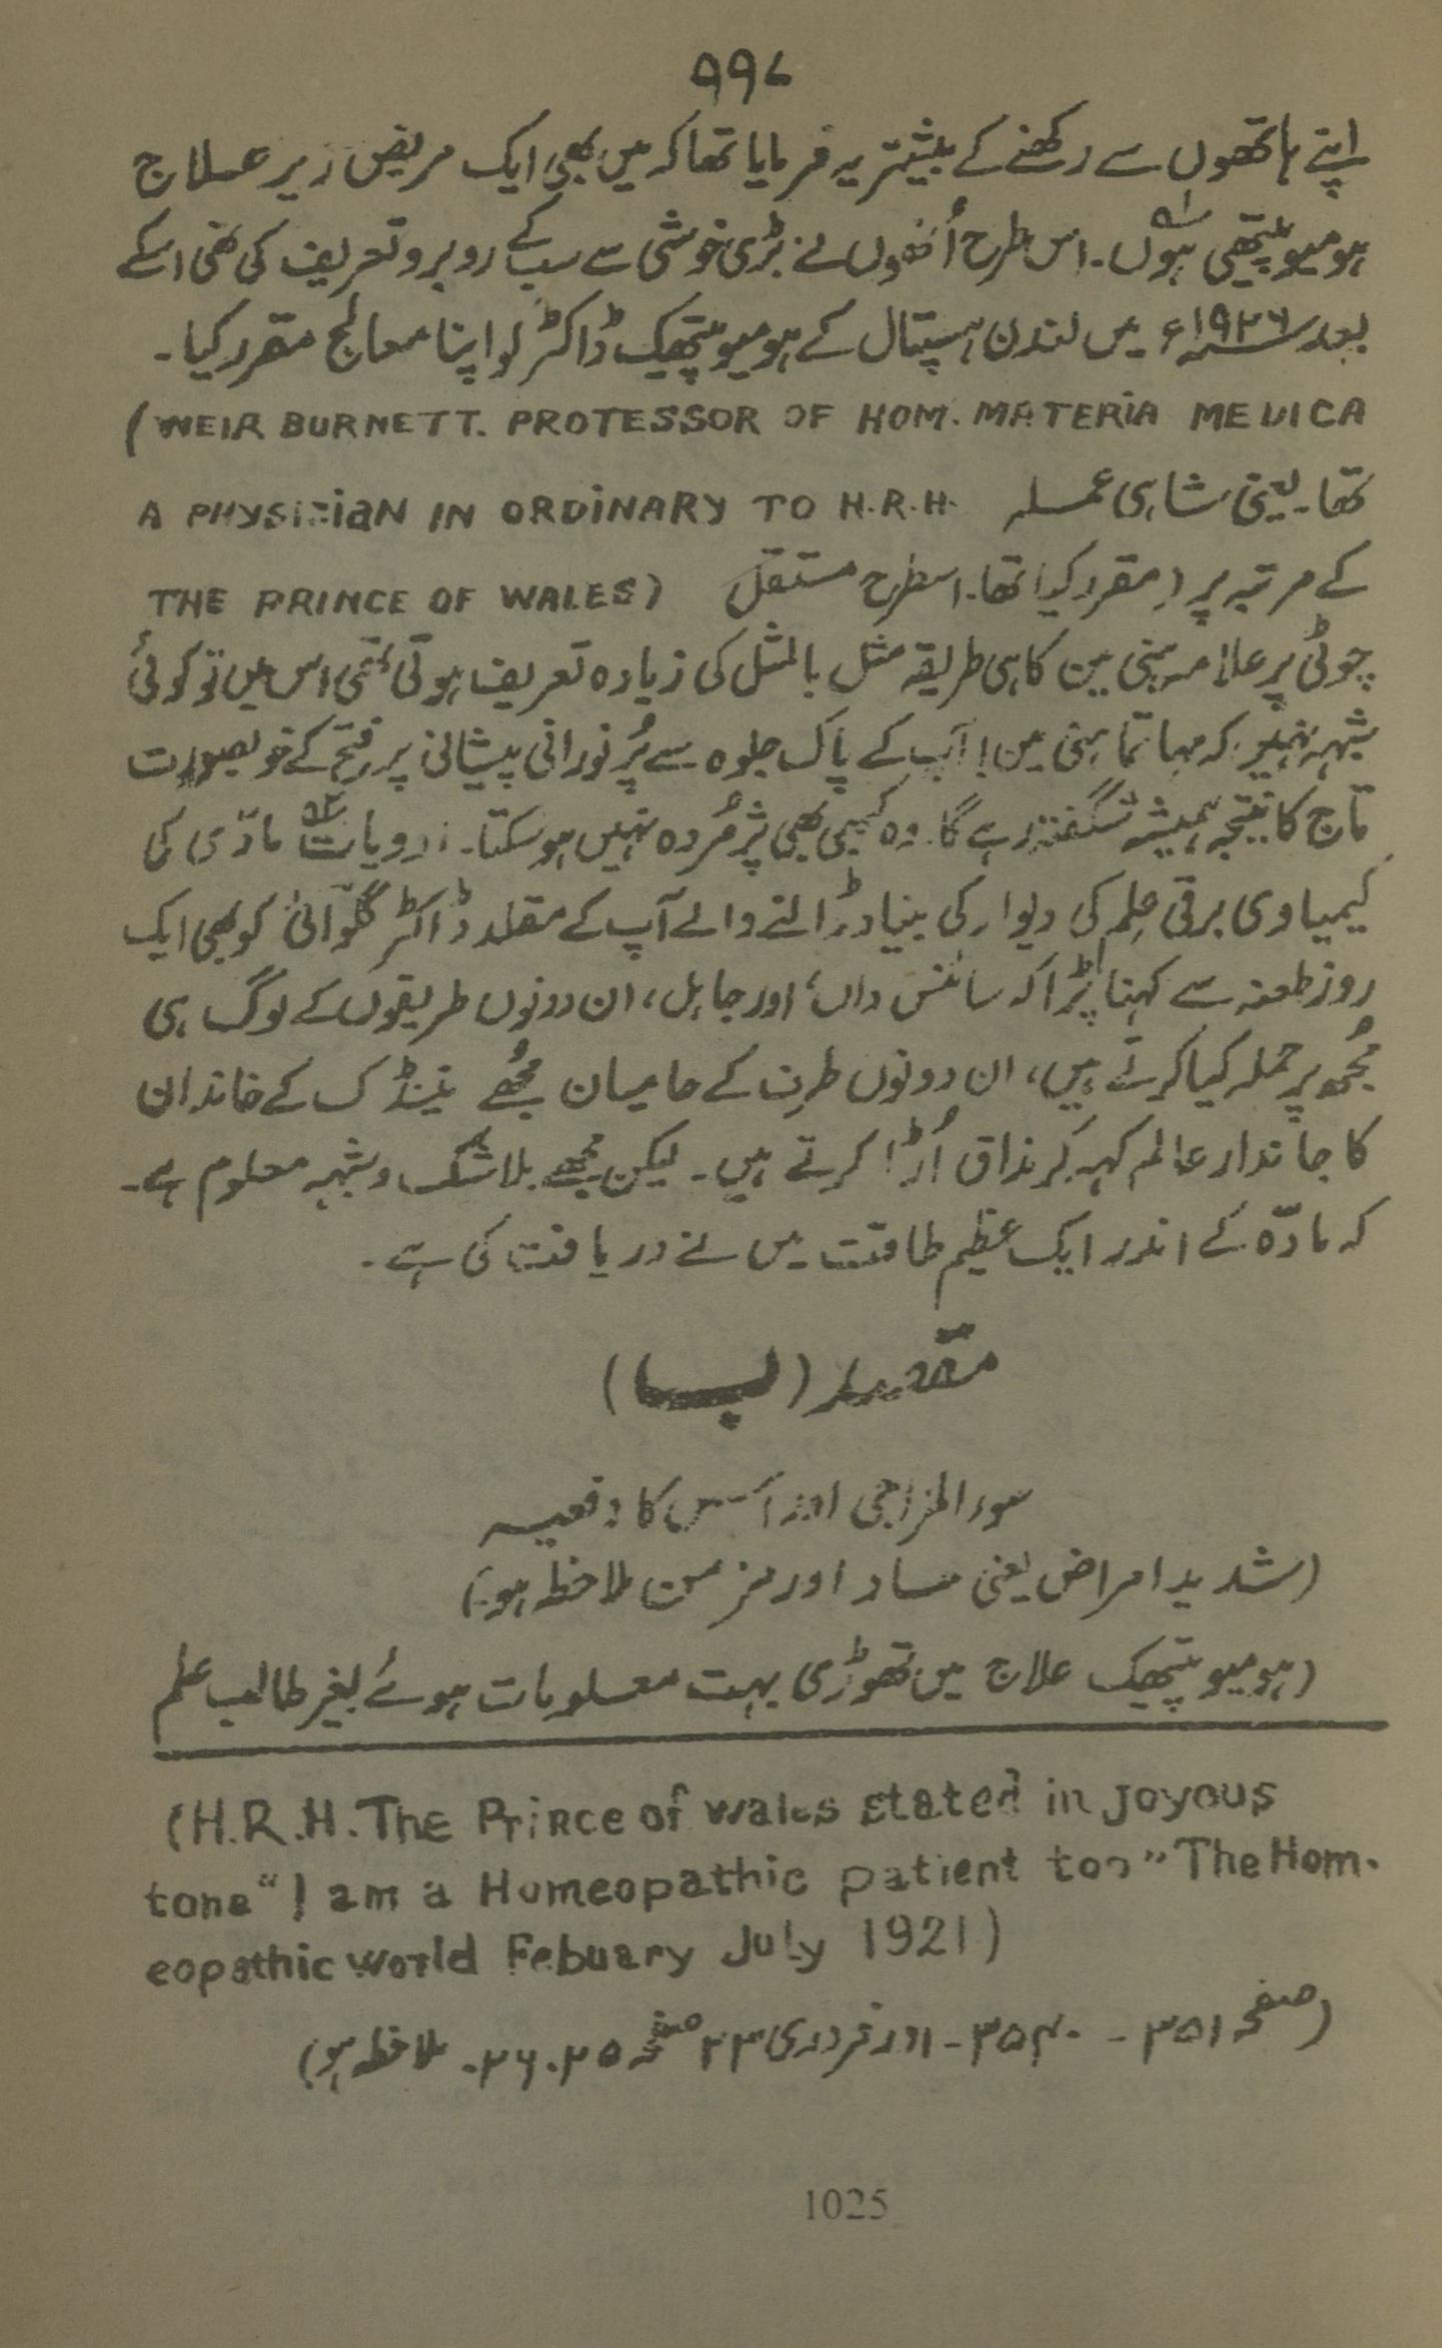 ۹۹۷
اپنے ہاتھوں سے رکھنے کے پیشتر یہ فرمایا تھا کہ میں بھی ایک مریض زیر علاج
ہومیوپیتھی ہوں۔ اس طرح اُنھوں نے بڑی خوشی سے سب کے روبرو تعریف کی تھی اسکے
بعد ۱۹۲۶ء میں لندن ہسپتال کے ہومیوپیتھیک ڈاکٹر کو اپنا معالج مقرر کیا۔
(WEIR BURNETT. PROTESSOR OF HOM. MATERIA MEDICA
تھا۔ یعنی شاہی عملہ A PHYSICIAN IN ORDINARY TO H.R.H.
کے مرتبہ پر (مقرر کیا تھا۔ اسطرح مستقل THE PRINCE OF WALES)
چوٹی پر علامہ ہنی مین کا ہی طریقہ مثل بالمثل کی زیادہ تعریف ہوتی تھی اس میں تو کوئی
شبہہ نہیں کہ مہاتما ہنی مین! آپ کے پاک جلوہ سے پُر نورانی پیشانی پر فتح کے خوبصورت
تاج کا نتیجہ ہمیشہ شگفتہ رہے گا۔ وہ کبھی بھی پژمُردہ نہیں ہوسکتا۔ ادویات مادّی کی
کیمیاوی برقی علم کی دیوار کی بنیاد ڈالنے والے آپ کے مقلد ڈاکٹر گلوآنی کو بھی ایک
روز طعنہ سے کہنا پڑا کہ سائنس داں، اور جاہل، ان دونوں طریقوں کے لوگ ہی
مُجھ پر حملہ کیا کرتے ہیں، ان دونوں طرف کے حامیان مُجھے مینڈک کے خاندان
کا جاندار عالم کہہ کر مذاق اُڑا کرتے ہیں۔ لیکن مجھے بلاشک و شبہہ معلوم ہے۔
کہ مادّہ کے اندر ایک عظیم طاقت میں نے دریافت کی ہے۔
(ب)
سوء المزاجی اور اس کا دفعیہ
(شدید امراض یعنی حاد اور مزمن ملاحظہ ہو)
(ہومیوپیتھیک علاج میں تھوڑی بہت معلومات ہوئے بغیر طالب علم
(H.R.H. The Prince of wales stated in joyous
tone "I am a Homeopathic patient too" The Hom.
eopathic world Febuary July 1921)
(صفحہ ۳۵۱ - ۳۵۴۰ - اور فروری ۲۳ صفحہ ۲۵.۲۶. ملاحظہ ہو)
1025